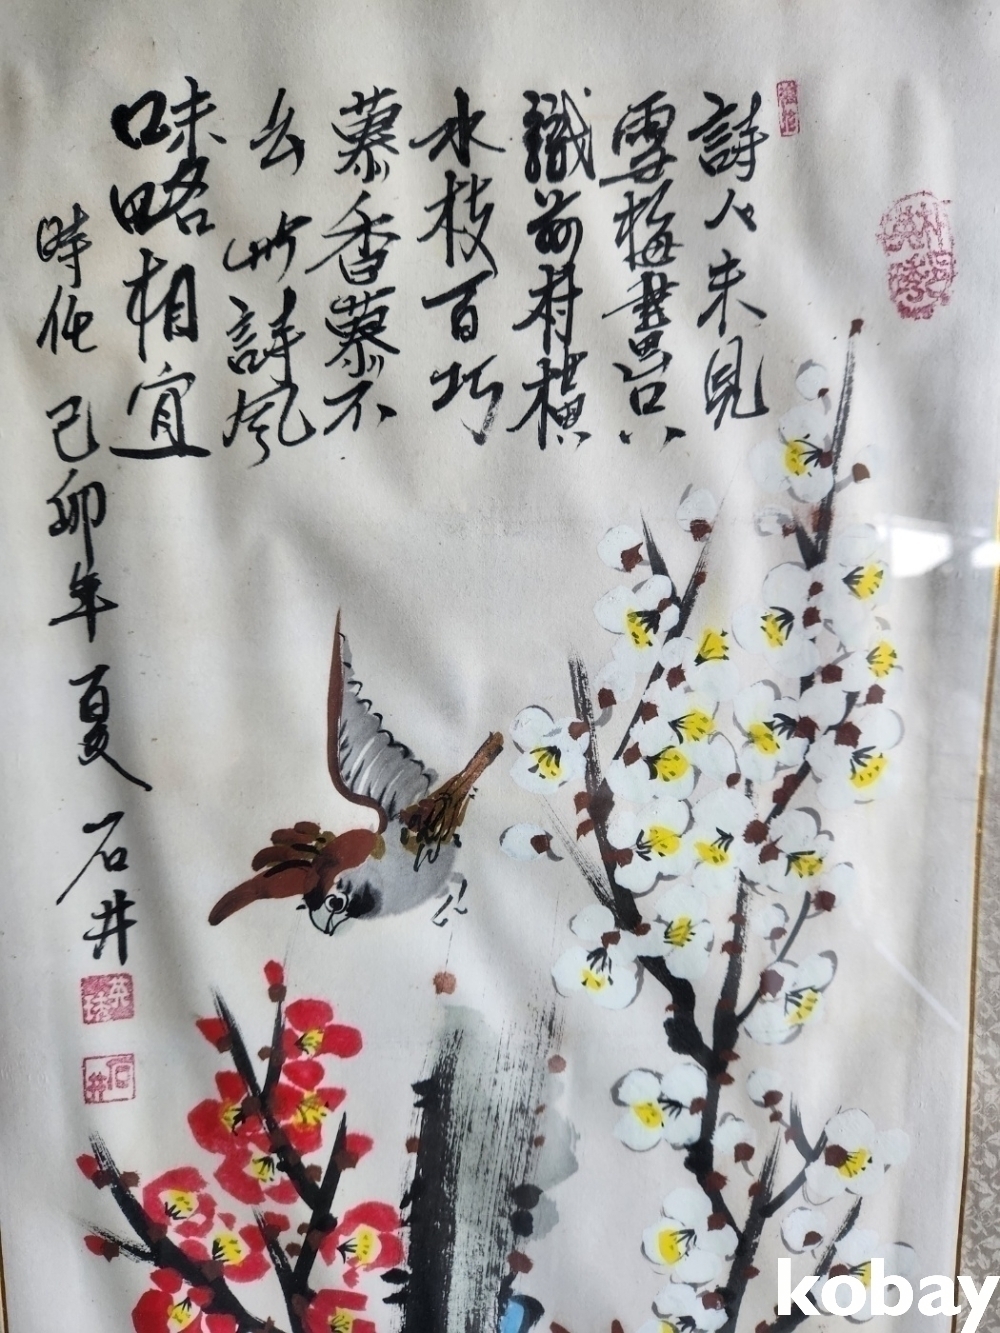 詩人未見
雪梅畫只
識前村橫
水枝百巧
慕香慕不
詩風
味略相宜
時在 己卯年 夏 石井
石井
kobay